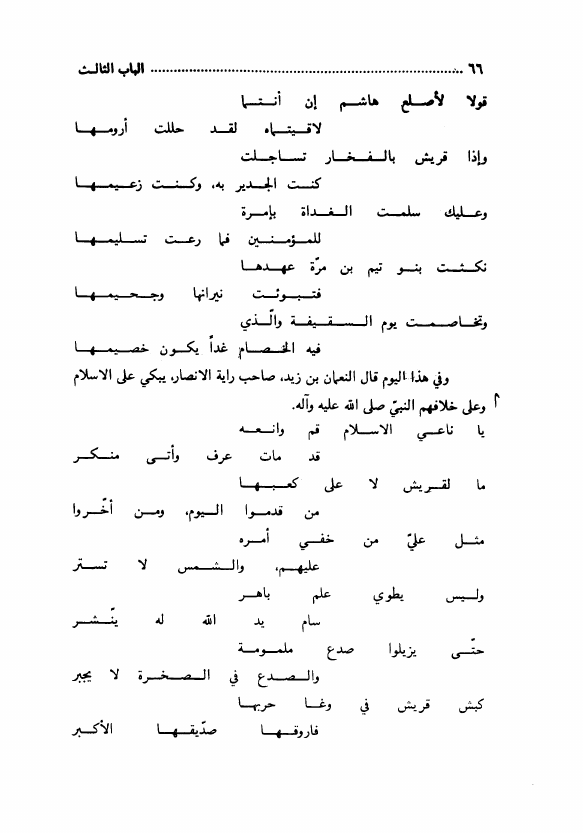 ٦٦ ........ الباب الثالث
قولا لأصلع هاشم إن أنتما
لاقيتماه لقد حللت أرومها
وإذا قريش بالفخار تساجلت
كنت الجدير به، وكنت زعيمها
وعليك سلمت الغداة بإمرة
للمؤمنين فما رعت تسليمها
نكثت بنو تيم بن مرّة عهدها
فتبوئت نيرانها وجحيمها
وتخاصمت يوم السقيفة والّذي
فيه الخصام غداً يكون خصيمها
وفي هذا اليوم قال النعمان بن زيد، صاحب راية الانصار، يبكي على الاسلام
وعلى خلافهم النبيّ صلى الله عليه وآله.
يا ناعي الاسلام قم وانعه
قد مات عرف وأتى منكر
ما لقريش لا على كعبها
من قدموا اليوم، ومن أخّروا
مثل عليّ من خفي أمره
عليهم، والشمس لا تستر
وليس يطوي علم باهر
سام يد الله له ينّشر
حتّى يزيلوا صدع ملمومة
والصدع في الصخرة لا يجبر
كبش قريش في وغا حربها
فاروقها صدّيقها الأكبر